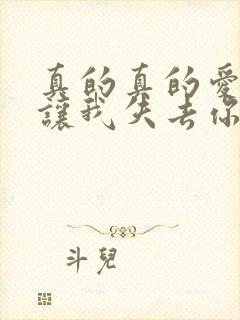 真的真的愛
讓我失去你
斗兒